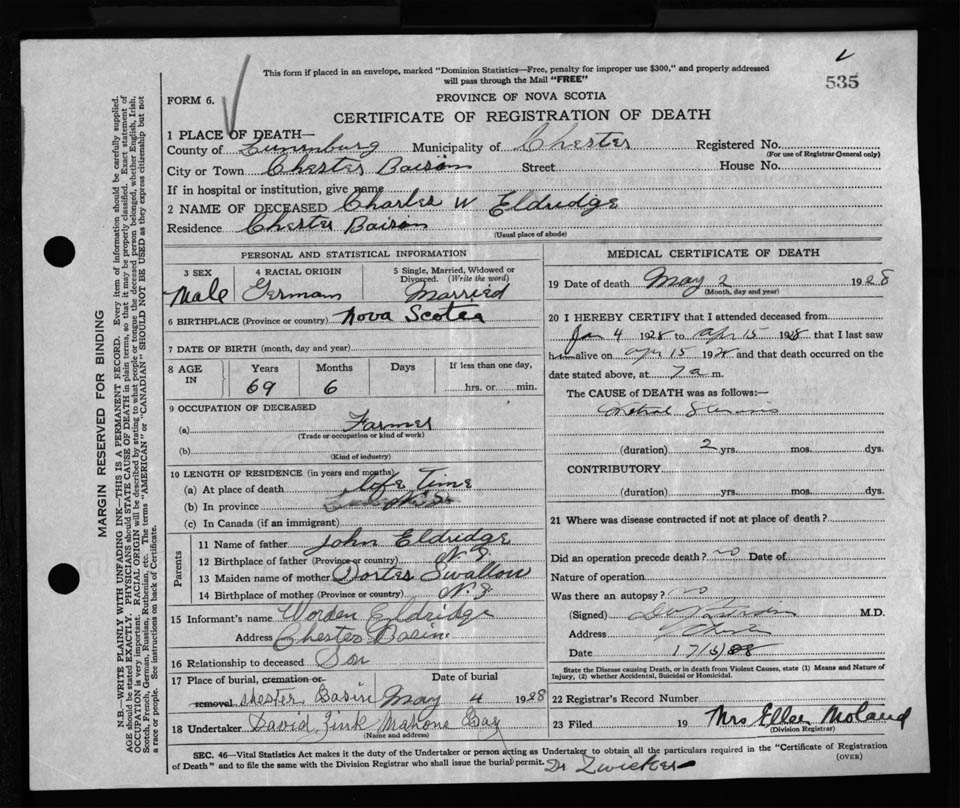 This form if placed in an envelope, marked "Dominion Statistics—Free, penalty for improper use $300," and properly addressed
will pass through the Mail "FREE"
535
FORM 6.
PROVINCE OF NOVA SCOTIA
CERTIFICATE OF REGISTRATION OF DEATH
1 PLACE OF DEATH—
County of Lunenburg Municipality of Chester Registered No.
(For use of Registrar General only)
City or Town Chester Baison Street House No.
If in hospital or institution, give name
2 NAME OF DECEASED Charles W Eldridge
Residence Chester Baison
(Usual place of abode)
PERSONAL AND STATISTICAL INFORMATION
3 SEX 4 RACIAL ORIGIN 5 Single, Married, Widowed or Divorced. (Write the word)
Male German Married
6 BIRTHPLACE (Province or country) Nova Scotia
7 DATE OF BIRTH (month, day and year)
8 AGE IN Years Months Days If less than one day,
69 6 hrs. or min.
9 OCCUPATION OF DECEASED
(a) Farmer
(Trade or occupation or kind of work)
(b)
(Kind of industry)
10 LENGTH OF RESIDENCE (in years and months)
(a) At place of death life Time
(b) In province
(c) In Canada (if an immigrant)
Parents
11 Name of father John Eldridge
12 Birthplace of father (Province or country) N.S.
13 Maiden name of mother Dorter Swallow
14 Birthplace of mother (Province or country) N.S.
15 Informant's name Worden Eldridge
Address Chester Basin
16 Relationship to deceased Son
17 Place of burial, cremation or removal Date of burial
Chester Basin May 4 1928
18 Undertaker David Zink Mahone Bay
(Name and address)
MEDICAL CERTIFICATE OF DEATH
19 Date of death May 2 1928
(Month, day and year)
20 I HEREBY CERTIFY that I attended deceased from
Jan 4 1928 to Apr 15 1928 that I last saw
h alive on Apr 15 1928 and that death occurred on the
date stated above, at 7 a m.
The CAUSE OF DEATH was as follows:—
Mitral Stenosis
(duration) 2 yrs. mos. dys.
CONTRIBUTORY
(duration) yrs. mos. dys.
21 Where was disease contracted if not at place of death?
Did an operation precede death? no Date of
Nature of operation
Was there an autopsy? no
(Signed) M.D.
Address
Date 17/5/28
State the Disease causing Death, or in death from Violent Causes, state (1) Means and Nature of
Injury, (2) whether Accidental, Suicidal or Homicidal.
22 Registrar's Record Number
23 Filed 19 Mrs Ellen Moland
(Division Registrar)
SEC. 46—Vital Statistics Act makes it the duty of the Undertaker or person acting as Undertaker to obtain all the particulars required in the "Certificate of Registration
of Death" and to file the same with the Division Registrar who shall issue the burial permit.
(OVER)
Dr Zwicker
MARGIN RESERVED FOR BINDING
N.B.—WRITE PLAINLY WITH UNFADING INK—THIS IS A PERMANENT RECORD. Every item of information should be carefully supplied.
AGE should be stated EXACTLY. PHYSICIANS should STATE CAUSE OF DEATH in plain terms, so that it may be properly classified. Exact statement of
OCCUPATION is very important. RACIAL ORIGIN will be described by stating to what people or tongue the deceased person belonged, whether English, Irish,
Scotch, French, German, Russian, Ruthenian, etc. The terms "AMERICAN" or "CANADIAN" SHOULD NOT BE USED as they express citizenship but not
a race or people. See instructions on back of Certificate.